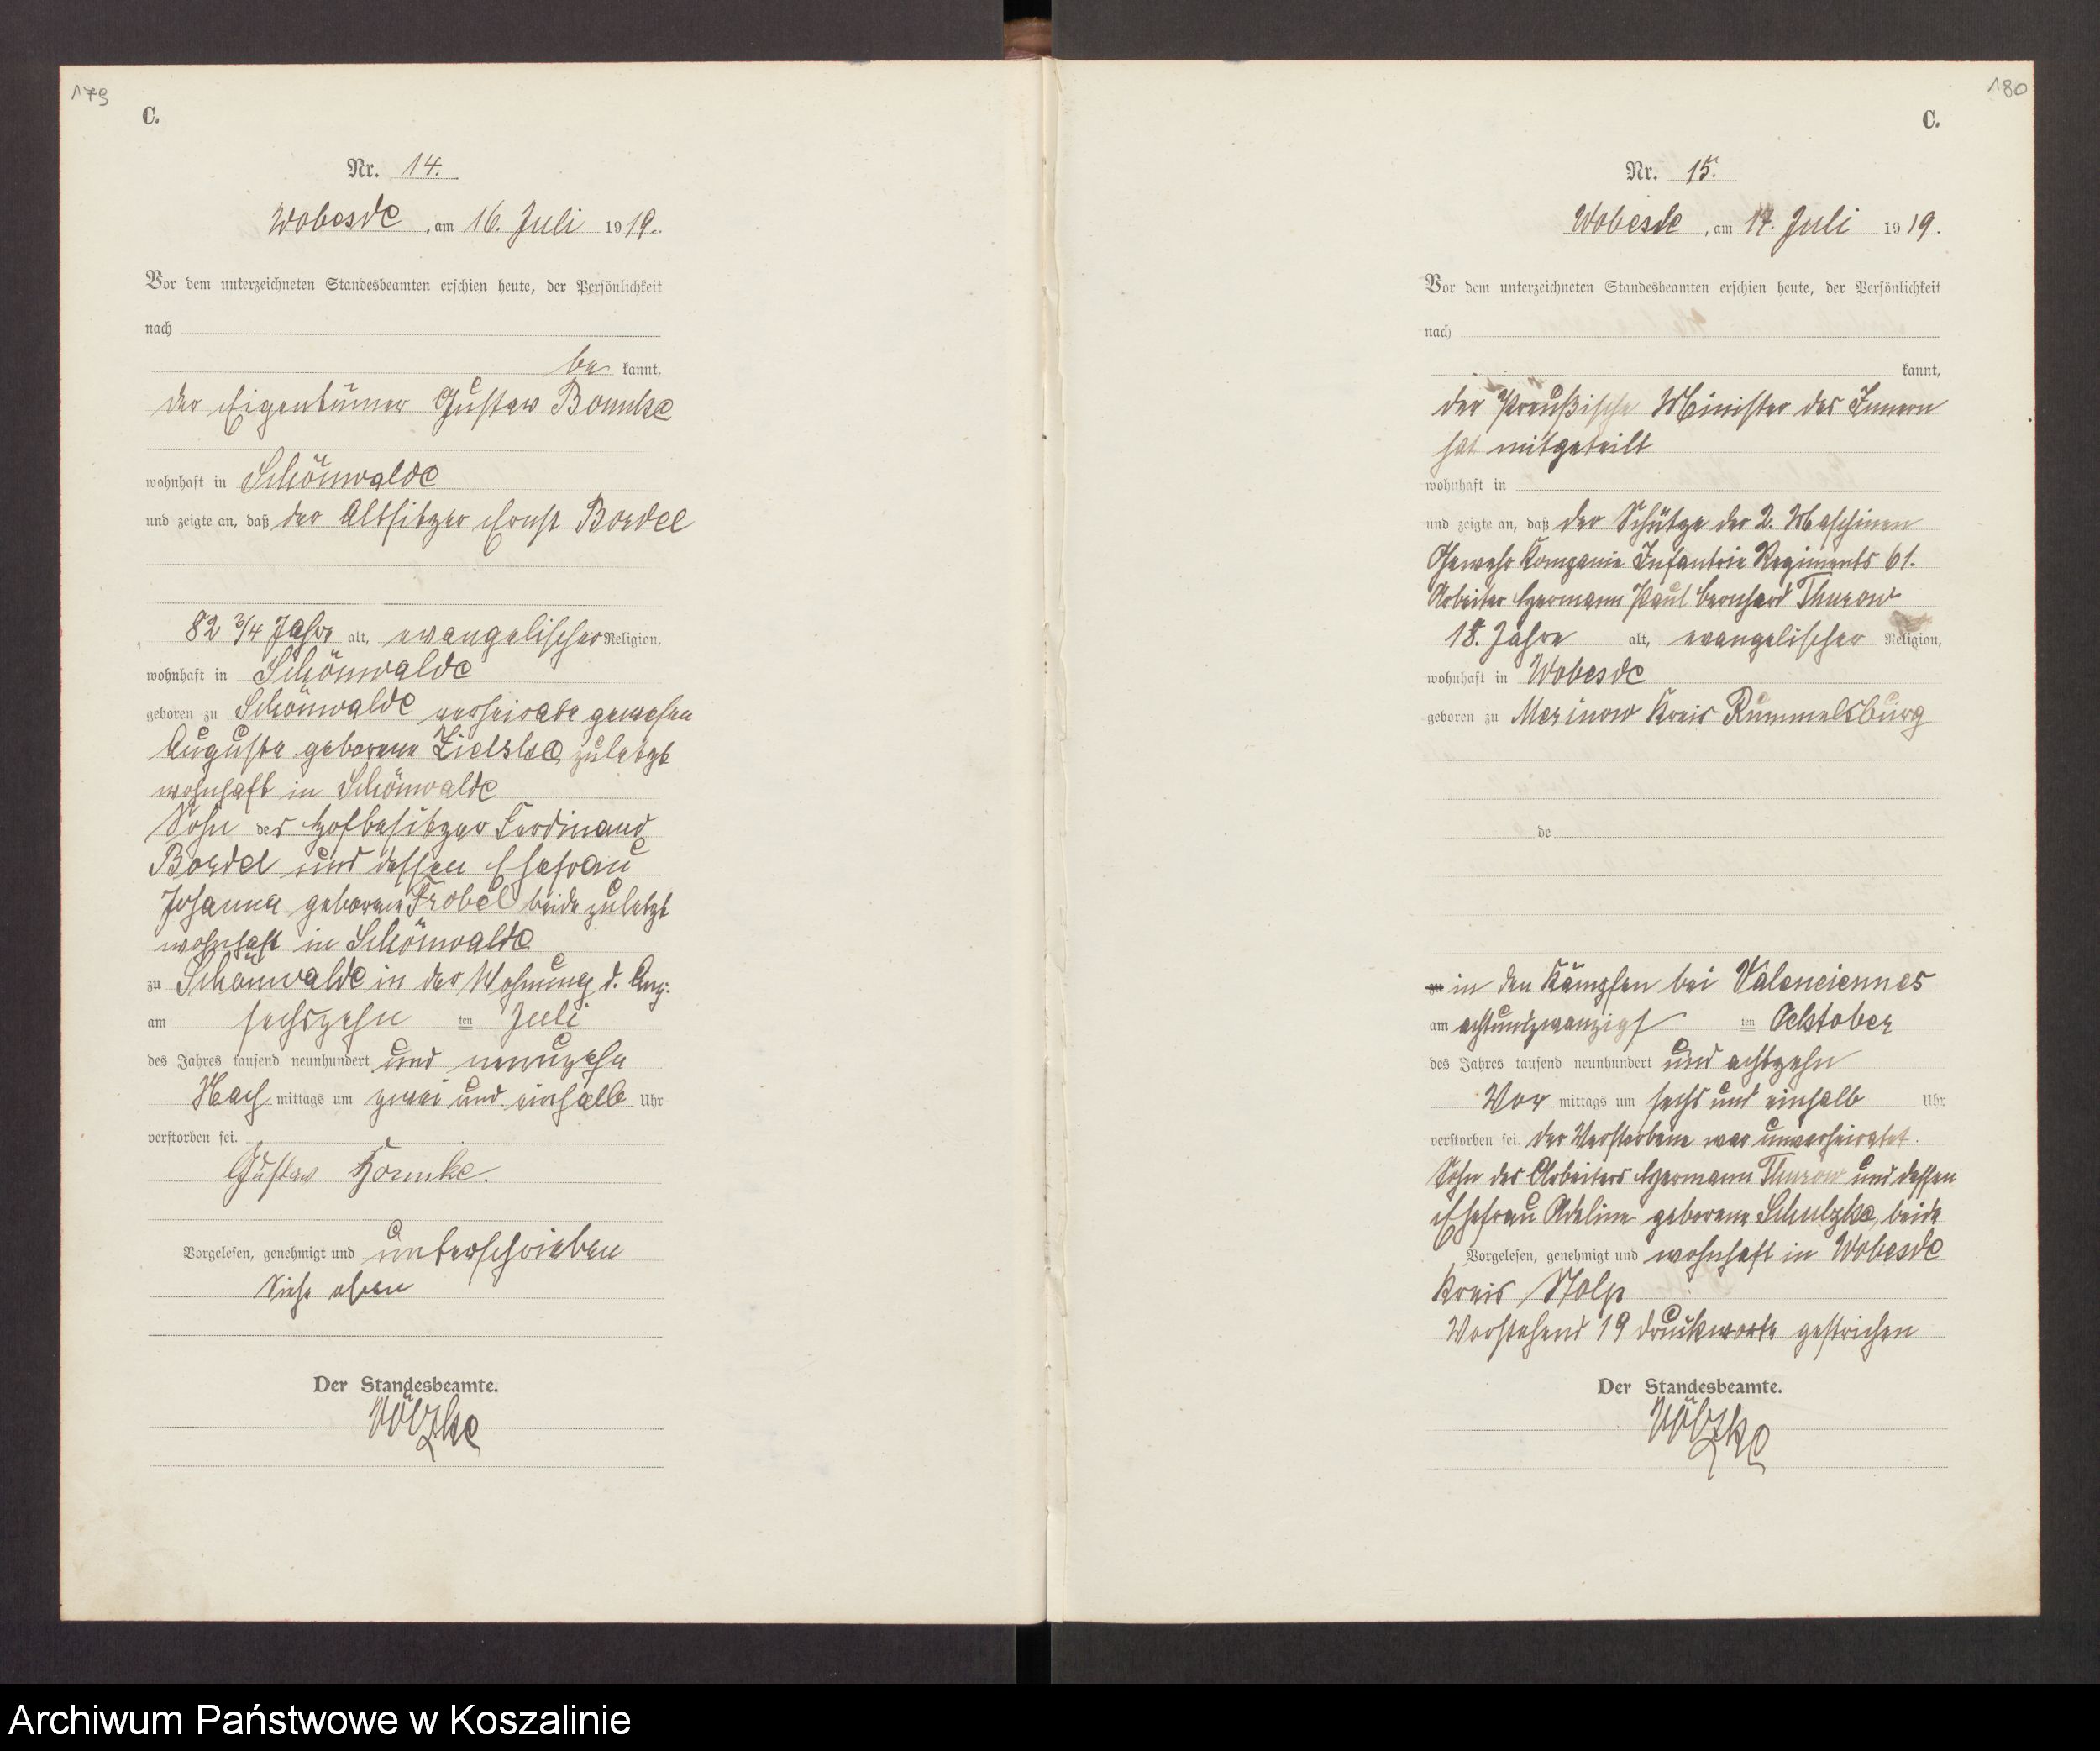 179
C.
Nr. 14.
Wobesde, am 16. Juli 1919.
Vor dem unterzeichneten Standesbeamten erschien heute, der Persönlichkeit
nach
be kannt,
der Eigentümer Gustav
wohnhaft in Schönwalde
und zeigte an, daß der Altsitzer Ernst
82 3/4 Jahre alt, evangelischer Religion,
wohnhaft in Schönwalde
geboren zu Schönwalde verheiratet gewesen
Auguste geborene zuletzt
wohnhaft in Schönwalde
Sohn des Hofbesitzer Ferdinand
und dessen Ehefrau
Johanna geborene beide zuletzt
wohnhaft in Schönwalde
zu Schönwalde in der Wohnung d. Anz.
am sechszehn ten Juli
des Jahres tausend neunhundert und neunzehn
Nach mittags um zwei und einhalb Uhr
verstorben sei.
Gustav
Vorgelesen, genehmigt und unterschrieben
Siehe oben
Der Standesbeamte.
Völzke
180
C.
Nr. 15.
Wobesde, am 17. Juli 1919.
Vor dem unterzeichneten Standesbeamten erschien heute, der Persönlichkeit
nach
kannt,
der Preußische Minister des Innern
hat mitgeteilt
wohnhaft in
und zeigte an, daß der Schütze der 2. Maschinen
Gewehr Kompanie Infantrie Regiments 61.
Arbeiter Hermann Paul Bernhard Thurow
18. Jahre alt, evangelischer Religion,
wohnhaft in Wobesde
geboren zu Merinow Kreis Rummelsburg
de
zu in den Kämpfen bei Valenciennes
am achtundzwanzigs ten Oktober
des Jahres tausend neunhundert und achtzehn
Vor mittags um sechs und einhalb Uhr
verstorben sei. Der Verstorbene war unverheiratet.
Sohn des Arbeiters Hermann Thurow und dessen
Ehefrau Adeline geborene Schulzke, beide
Vorgelesen, genehmigt und wohnhaft in Wobesde
Kreis Stolp
Vorstehend 19 Druckworte gestrichen
Der Standesbeamte.
Völzke
Archiwum Państwowe w Koszalinie